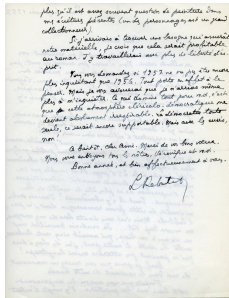 plus qu'il est assez souvent question de peinture dans
mes œuvres (un des personnages est un grand
collectionneur).
Si j'arrivais à trouver une besogne qui m'assurât
notre matérielle, je crois que cela serait profitable
au roman. J'y travaillerais avec plus de liberté d'es-
prit.
Vous vous demandez si 1957 ne va pas être
plus inquiétant que 1956. Tout porte en effet à le
penser. Mais je vous avouerai que je n'arrive même
plus à m'inquiéter.
cette atmosphère clérico-démocratique me
devient absolument irrespirable. La démocratie toute
seule, ce serait encore supportable. Mais avec le curés,
non!
À bientôt, cher ami. Merci de vos bons vœux.
Nous vous adressons les nôtres, Véronique et moi.
Bonne année, et bien affectueusement à vous.
L Rebatet